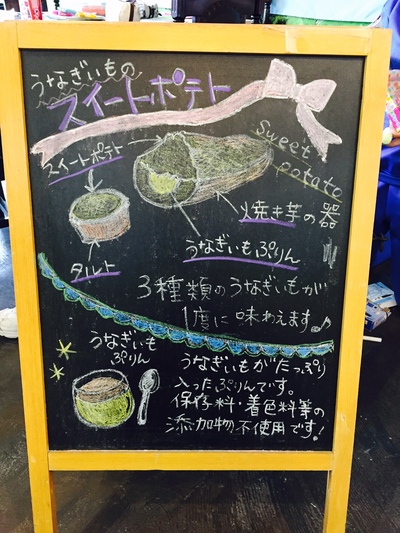 うなぎいもの
スイートポテト
Sweet
potato
スイートポテト
焼き芋の器
うなぎいもぷりん
タルト
3種類のうなぎいもが
1度に味わえます♪
うなぎいも
ぷりん
うなぎいもがたっぷり
入ったぷりんです。
保存料・着色料等の
添加物不使用です!